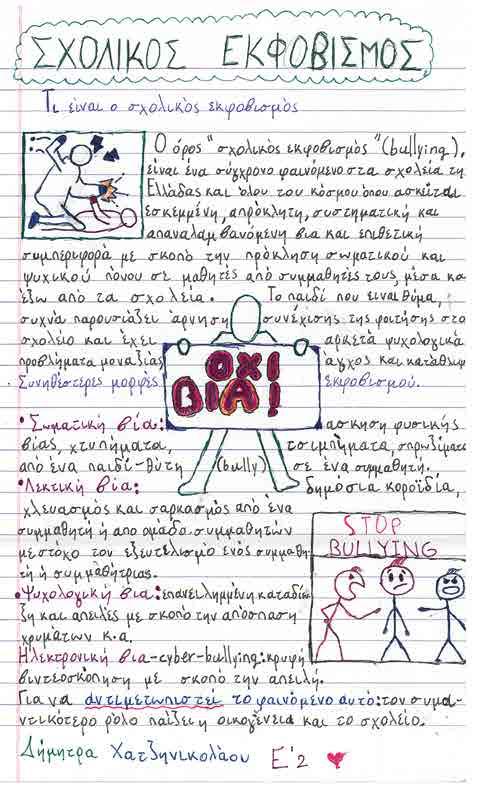 ΣΧΟΛΙΚΟΣ ΕΚΦΟΒΙΣΜΟΣ
Τι είναι ο σχολικός εκφοβισμός
Ο όρος "σχολικός εκφοβισμός" (bullying),
είναι ένα σύγχρονο φαινόμενο στα σχολεία τη
Ελλάδας και όλου του κόσμου όπου ασκείται
εσκεμμένη, απρόκλητη, συστηματική και
επαναλαμβανόμενη βια και επιθετική
συμπεριφορά με σκοπό την πρόκληση σωματικού και
ψυχικού πόνου σε μαθητές από συμμαθητές τους, μέσα κα
έξω από τα σχολεία. Το παιδί που ειναι θύμα,
συχνά παρουσιάζει άρνηση συνέχισης της φοιτήσης στο
σχολείο και έχει αρκετά ψυχολογικά
προβλήματα μοναξιάς άγχος και κατάθλιψ
Συνηθέστερες μορφές εκφοβισμού.
ΟΧΙ
ΒΙΑ!
• Σωματική βία: ασκηση φυσικής
βίας, χτυπήματα, τσιμπήματα, σπρωξίματα
από ένα παιδί-θύτη (bully) σε ένα συμμαθητή.
• Λεκτική βία: δημόσια κοροϊδία,
χλευασμός και σαρκασμός από ένα
συμμαθητή ή απο ομάδα συμμαθητών
με στόχο τον εξευτελισμό ενός συμμαθη-
τή ή συμμαθήτριας.
• Ψυχολογική βια: επανειλημμένη καταδίω-
ξη και απειλές με σκοπό την απόσπαση
χρημάτων κ.α.
Ηλεκτρονική βια-cyber-bullying: κρυφή
βιντεοσκόπηση με σκοπό την απειλή.
STOP
BULLYING
Για να αντιμετωπιστεί το φαινόμενο αυτό: τον σημα-
ντικότερο ρόλο παίζει η οικογένεια και το σχολείο.
Δήμητρα Χατζηνικολάου Ε'2